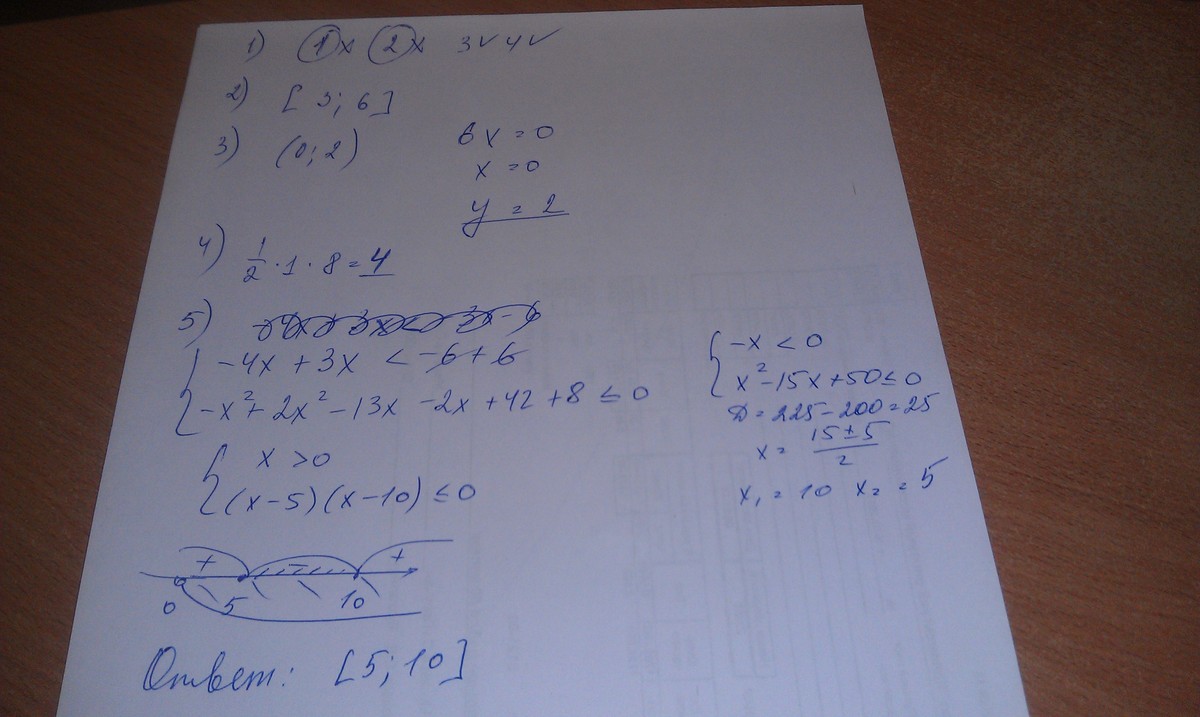 1) 1 x 2 x 3 ✓ 4 ✓
2) [ 3; 6 ]
3) (0; 2)
6x = 0
x = 0
y = 2
4) 1/2 · 1 · 8 = 4
5)
{ -4x + 3x < -6 + 6
-x² + 2x² - 13x - 2x + 42 + 8 ≤ 0
{ -x < 0
x² - 15x + 50 ≤ 0
D = 225 - 200 = 25
x = (15 ± 5)/2
x₁ = 10 x₂ = 5
{ x > 0
(x - 5)(x - 10) ≤ 0
+ - +
0 5 10
Ответ: [5; 10]